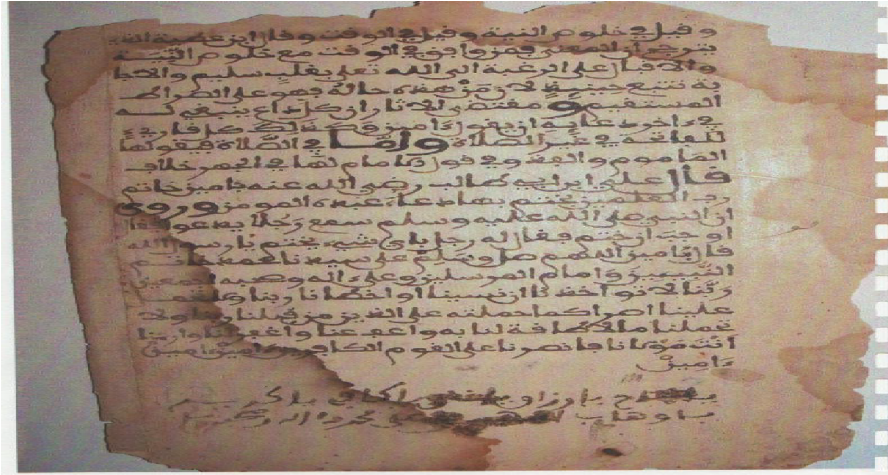 وقيل في خلوص النية وقيل في الوقت وقال ابن عطية الذي
يترجح أن المعنى فمن وافق في الوقت مع خلوص النية
والاقبال على الرغبة الى الله تعلى بقلب سليم والاجا
بة تتبع حينئذ لأن من هذه حاله فهو على الصراط
المستقيم و مقتضى الآثار ان كل داع ينبغي له
في ءاخر دعايه ان يقول ءامين وكذلك كل قارئ
للفاتحة في غير الصلاة واما في الصلاة فيقولها
الماموم والفذ وفي قول الامام لها في الجهر خلاف
قال علي ابن ابي طالب رضي الله عنه ءامين خاتم
رب العلمين يختم بها دعاء عبده المومن وروي
ان النبي صلى الله عليه وسلم سمع رجلا يدعو فقال
اوجب ان ختم فقال له رجل باي شيء يختم يا رسول الله
قال بآمين اللهم صل وسلم على سيدنا محمد خاتم
النبيين وامام المرسلين وعلى ءاله وصحبه اجمعين
ربنا لا تواخذنا ان نسينا او اخطانا ربنا ولا تحمل
علينا اصرا كما حملته على الذين من قبلنا ربنا ولا
تحملنا ما لا طاقة لنا به واعف عنا واغفر لنا وارحمنا
انت مولانا فانصرنا على القوم الكافرين ءامين ءامين
ءامين
يا فتاح يا رزاق يا كافي يا كريم
يا وهاب